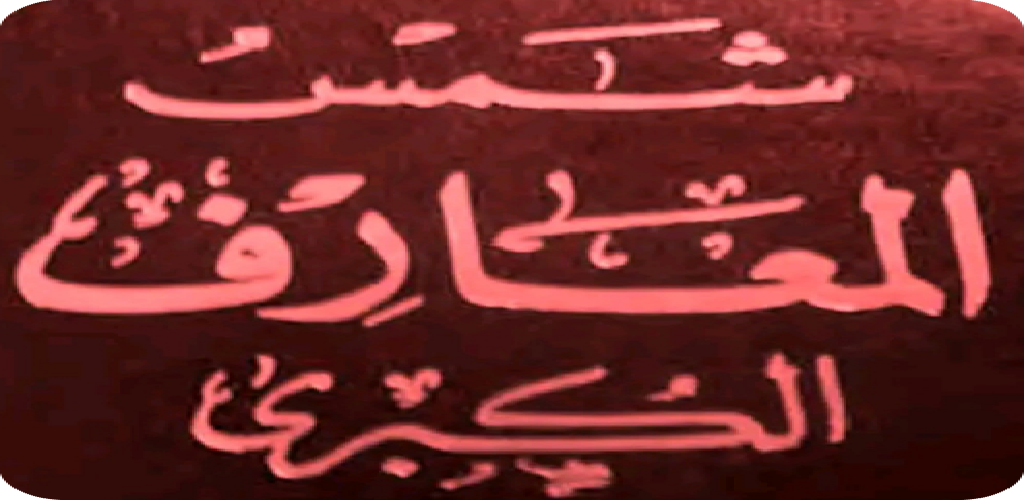 شمس
المعارف
الكبرى